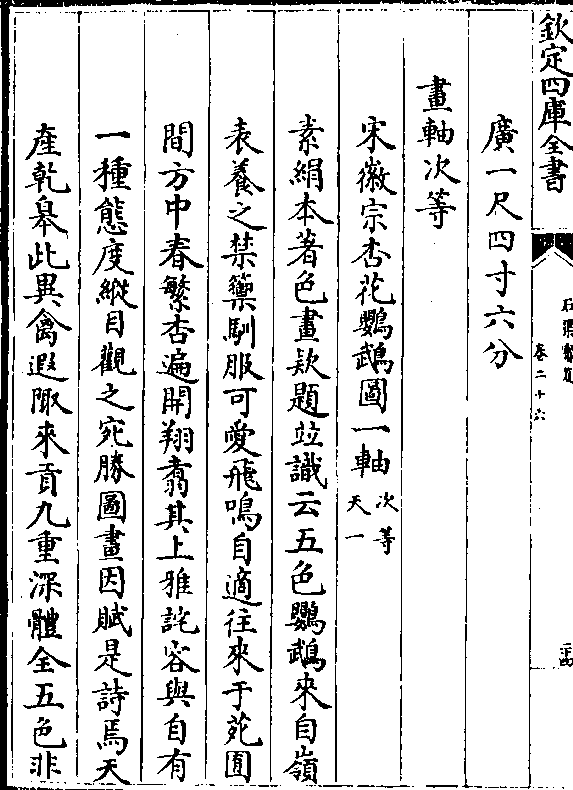 欽定四庫全書
石渠寶笈
卷二十六
二十四
廣一尺四寸六分
畫軸次等
宋徽宗杏花鸚鵡圖一軸 次等天一
素絹本著色畫欵題並識云五色鸚鵡來自嶺
表養之禁籞馴服可愛飛鳴自適往來于苑囿
間方中春繁杏遍開翔翥其上雅詫容與自有
一種態度縱目觀之宛勝圖畫因賦是詩焉天
產乾臯此異禽遐陬來貢九重深體全五色非